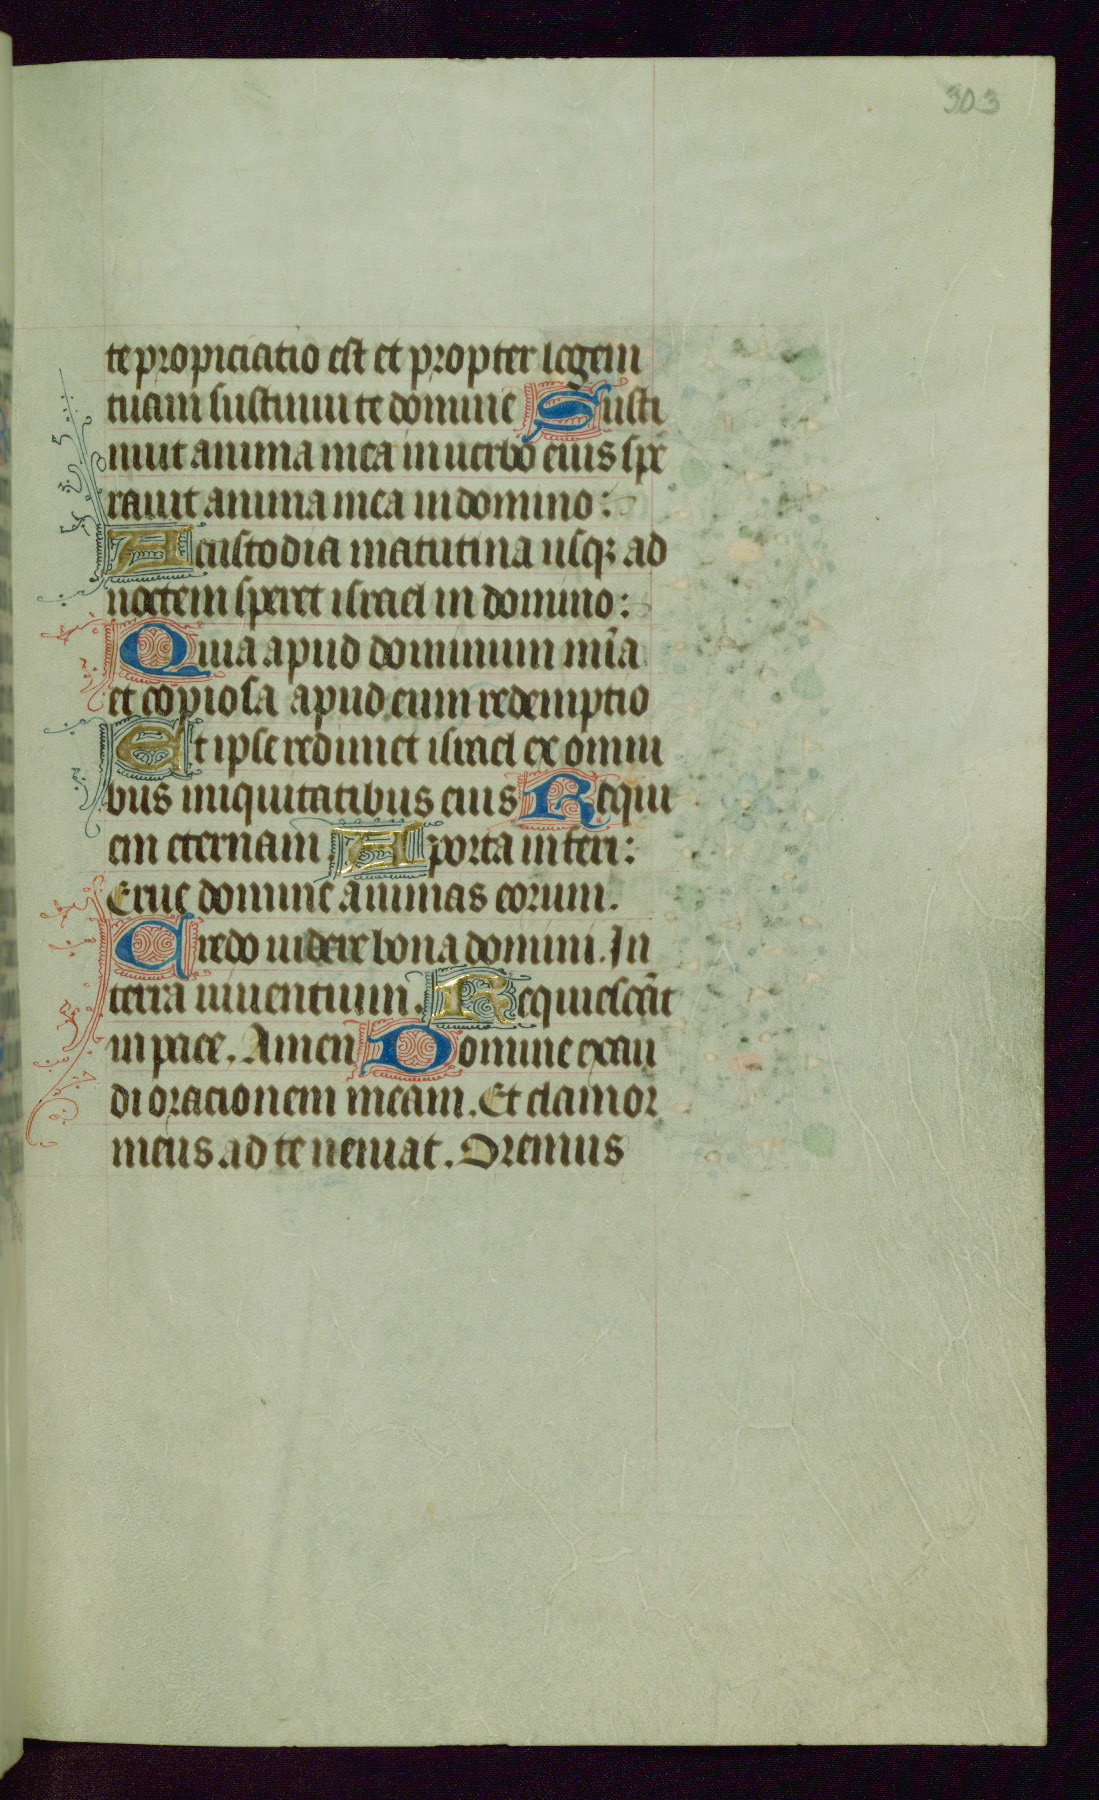 303
te propiciatio est et propter legem
tuam sustinui te domine Susti
nuit anima mea in uerbo eius spe
rauit anima mea in domino:
A custodia matutina usqꝫ ad
noctem speret israel in domino:
Quia apud dominum mīa
et copiosa apud eum redemptio
Et ipse redimet israel ex omni
bus iniquitatibus eius Requi
em eternam A porta inferi:
Erue domine animas eorum.
Credo uidere bona domini. In
terra uiuentium. Requiescāt
in pace. Amen Domine exau
di oracionem meam. Et clamor
meus ad te ueniat. Oremus